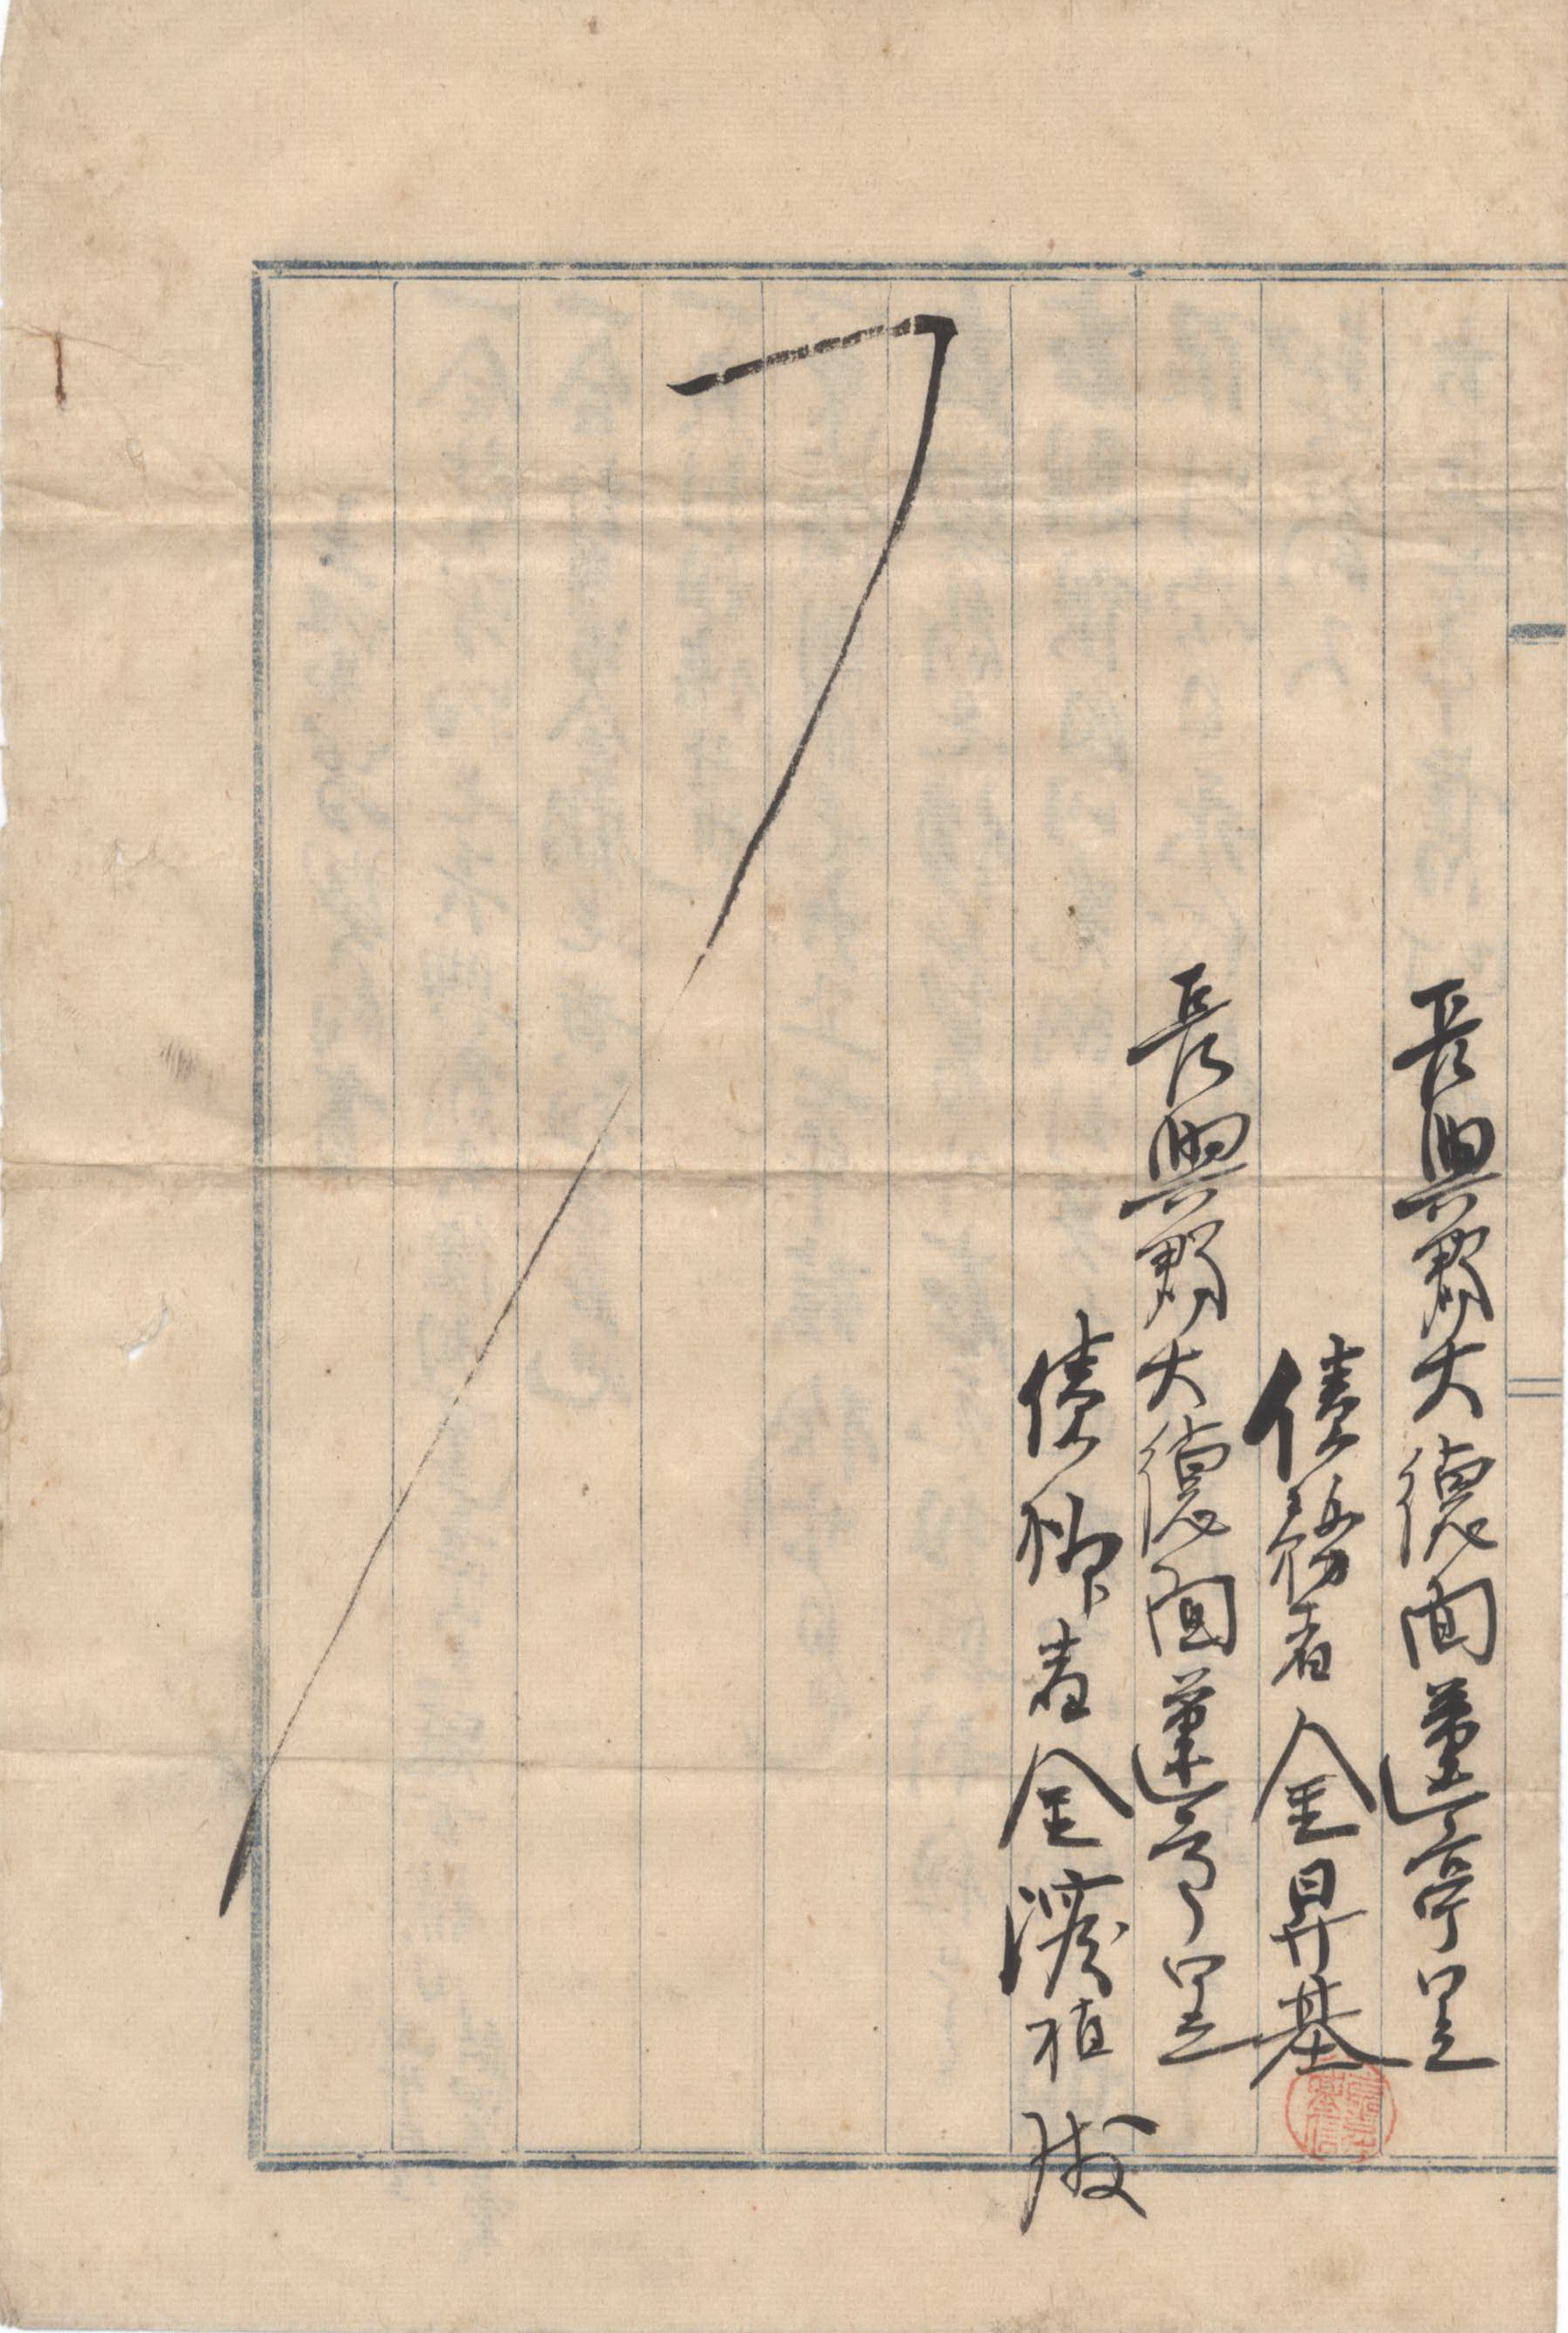 長興郡大德面蓮亭里
債務者金昇基
長興郡大德面蓮亭里
債權者金漢植 殿